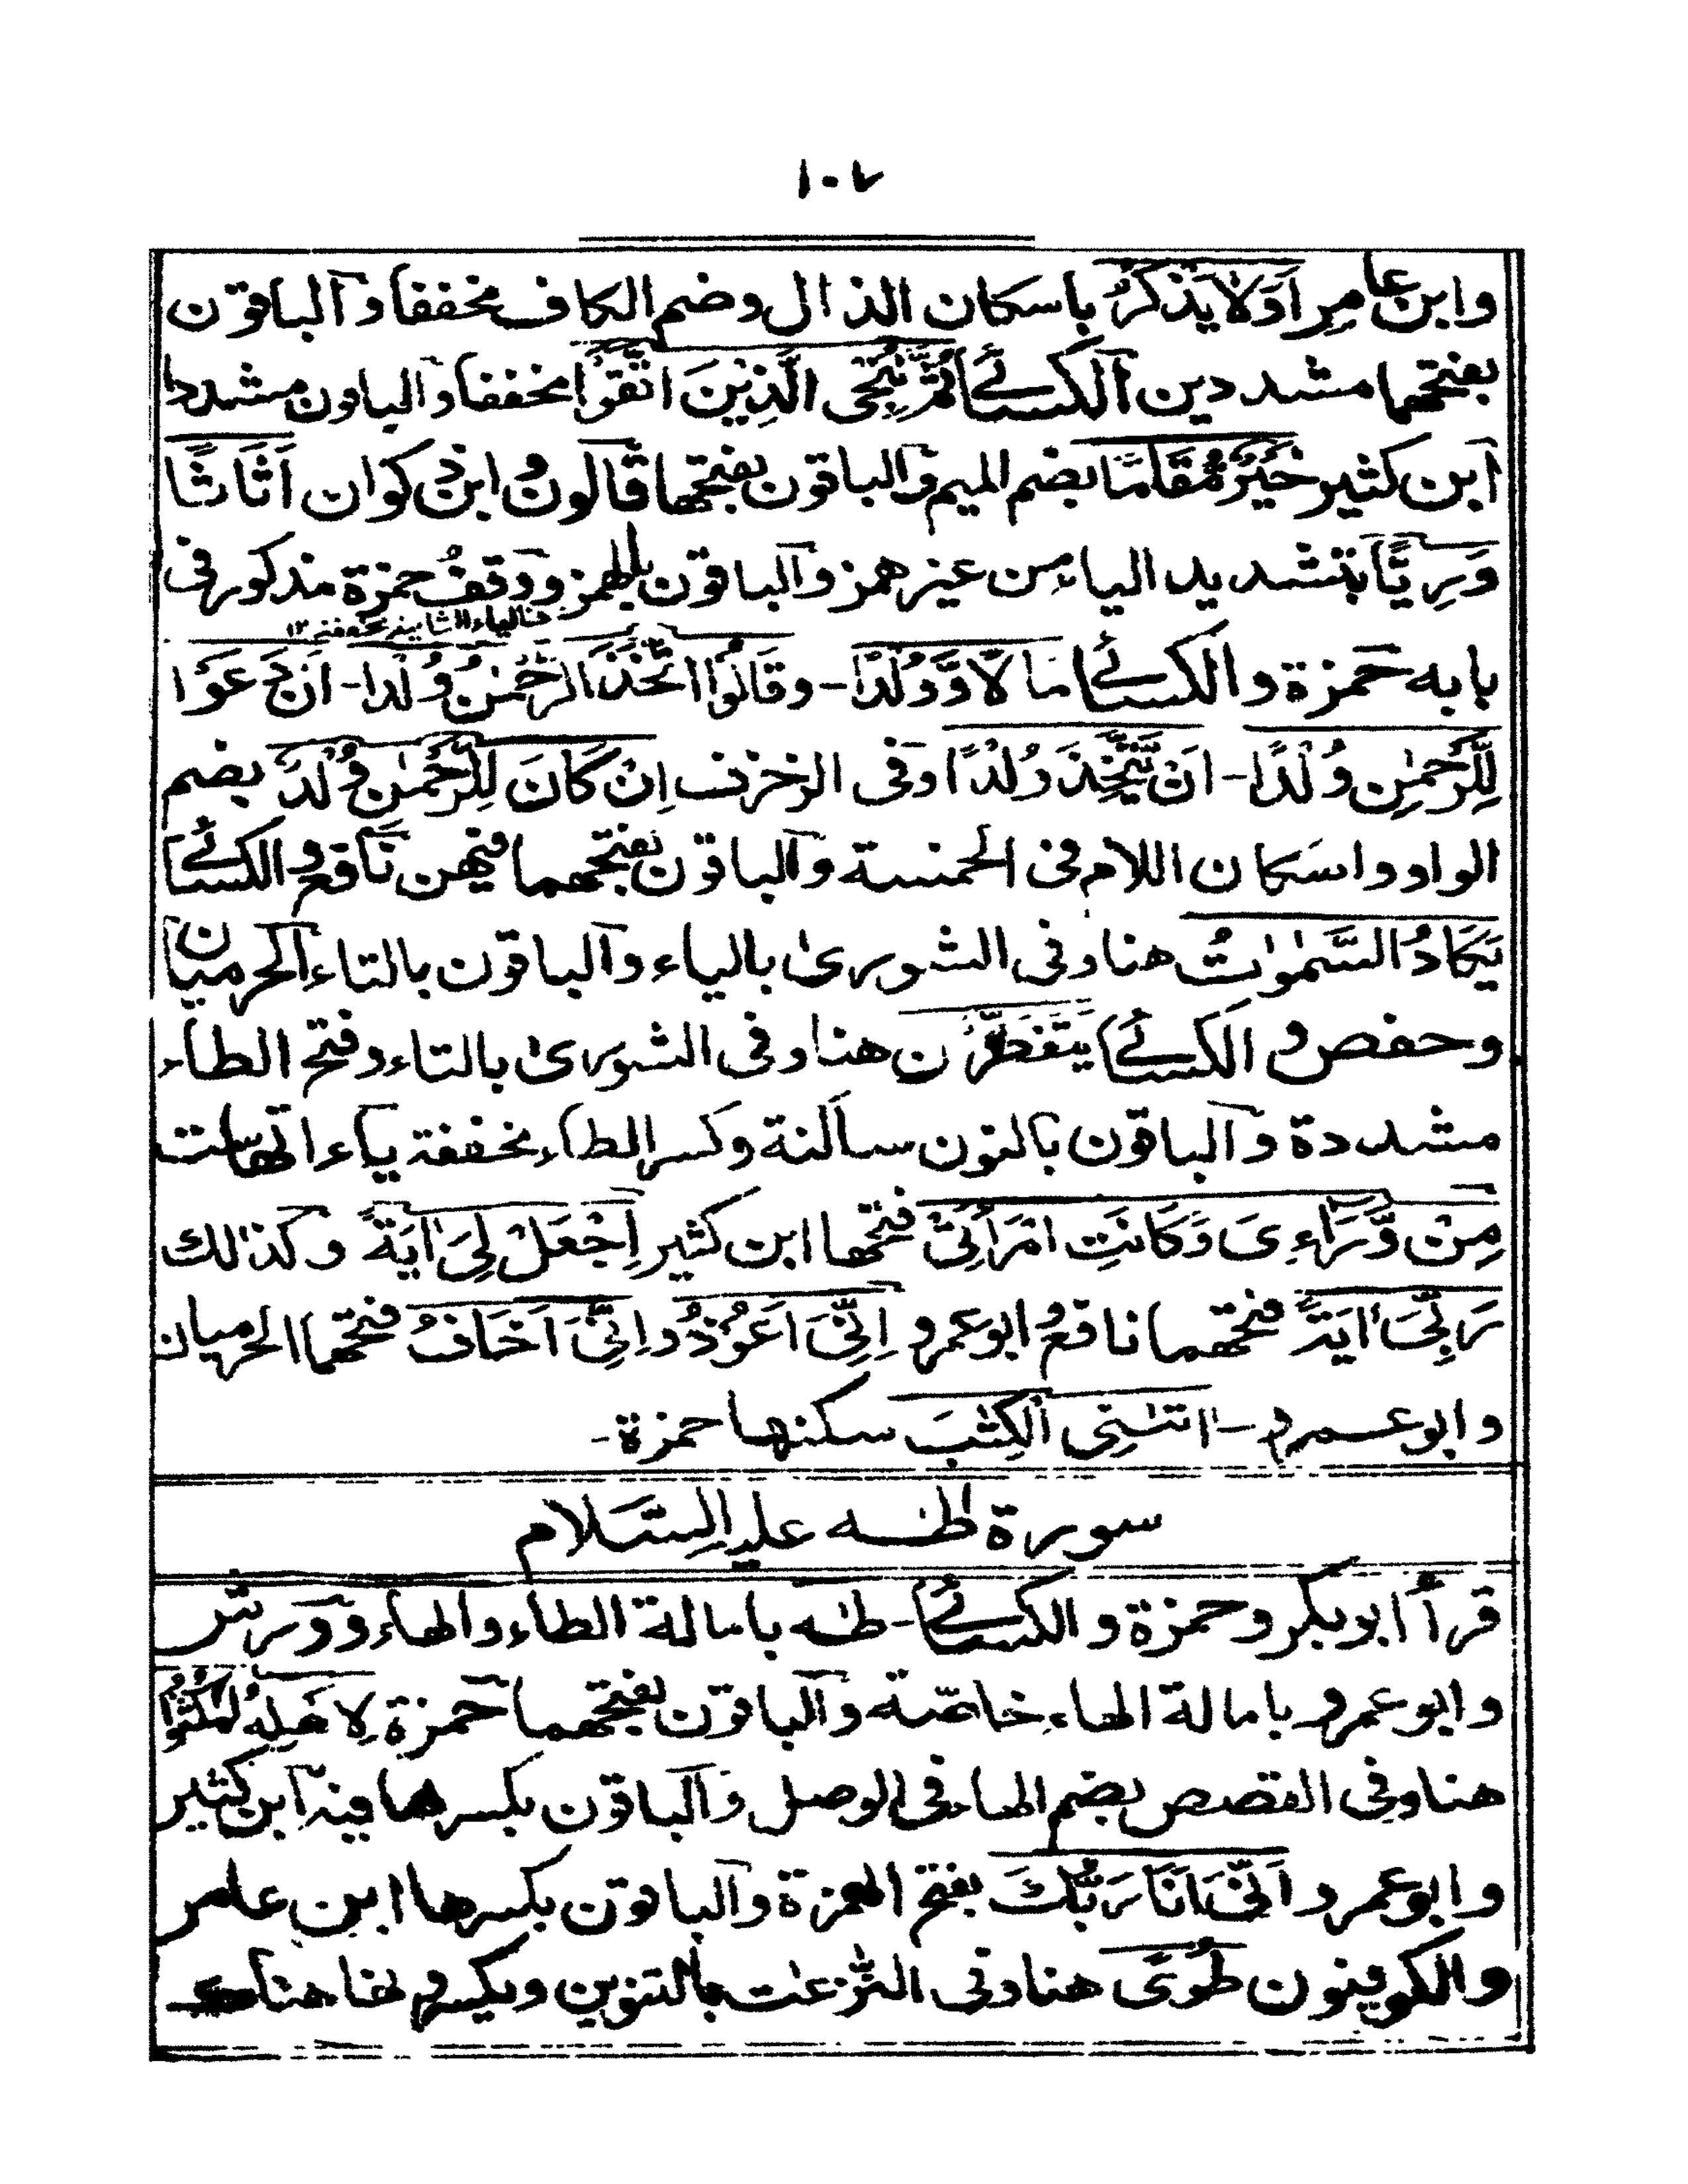 ١٠٧
وابن عامر اَوَلَا يَذْكُرُ باسكان الذال وضم الكاف مخففا والباقون
بفتحهما مشددين الكسائے ثُمَّ نُنْجِى الَّذِيْنَ اتَّقَوْا مخففا والباون مشددا
ابن كثير خَيْرٌ مُّقَامًا بضم الميم والباقون بفتحها قالون وابن ذكوان اَثَاثًا
وَرِيًّا بتشديد الياء من غير همز والباقون بالهمز ووقف حمزة مذكور فى
بابه حمزة والكسائے مالًا وَّوُلْدًا - وقَالُوا اتَّخَذَ الرَّحْمٰنُ وُلْدا - اَنْ دَعَوْا
لِلرَّحْمٰنِ وُلْدًا - اَنْ يَّتَّخِذَ وُلْدًا وفى الزخرف اِنْ كَانَ لِلرَّحْمٰنِ وُلْدٌ بضم
الواو واسكان اللام فى الخمسة والباقون بفتحهما فيهن نافع والكسائے
يَكَادُ السَّمٰوٰتُ هنا وفى الشورىٰ بالياء والباقون بالتاء الحرميان
وحفص والكسائے يَتَفَطَّرْنَ هنا وفى الشورىٰ بالتاء وفتح الطاء
مشددة والباقون بالنون ساكنة وكسر الطاء مخففة ياءاتها ست
مِنْ وَّرَاءِىَ وَكَانَتِ امْرَاَتِىْ فتحها ابن كثير اِجْعَلْ لِىَ اٰيَةً وكذالك
رَبِّىَ اٰيَةً فتحهما نافع وابو عمرو اِنِّىَ اَعُوْذُ واِنِّىَ اَخَافُ فتحهما الحرميان
وابو عمرو - اٰتٰنِى الْكِتٰبَ سكنها حمزة -
سورة طٰه عليه السَّلام
قرأ ابوبكر وحمزة والكسائے - طٰه بامالة الطاء والهاء وورش
وابو عمرو بامالة الهاء خاصة والباقون بفتحهما حمزة لِاَهْلِهُ امْكُثُوْا
هنا وفى القصص بضم الهاء فى الوصل والباقون بكسرها فيه ابن كثير
وابو عمرو اَنِّىَ اَنَا رَبُّكَ بفتح الهمزة والباقون بكسرها ابن عامر
والكوفيون طُوًى هنا وفى النّٰزعٰت بالتنوين ويكسرونها هنا